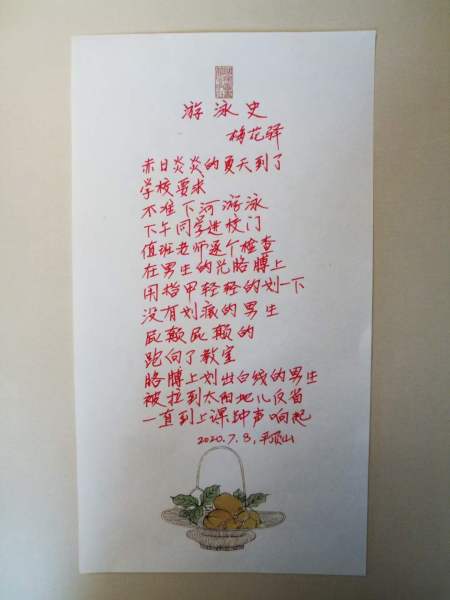 游泳史
梅花驿
赤日炎炎的夏天到了
学校要求
不准下河游泳
下午同学进校门
值班老师逐个检查
在男生的光胳膊上
用指甲轻轻的划一下
没有划痕的男生
屁颠屁颠的
跑向了教室
胳膊上划出白线的男生
被拉到太阳地儿反省
一直到上课钟声响起
2020.7.8,平顶山